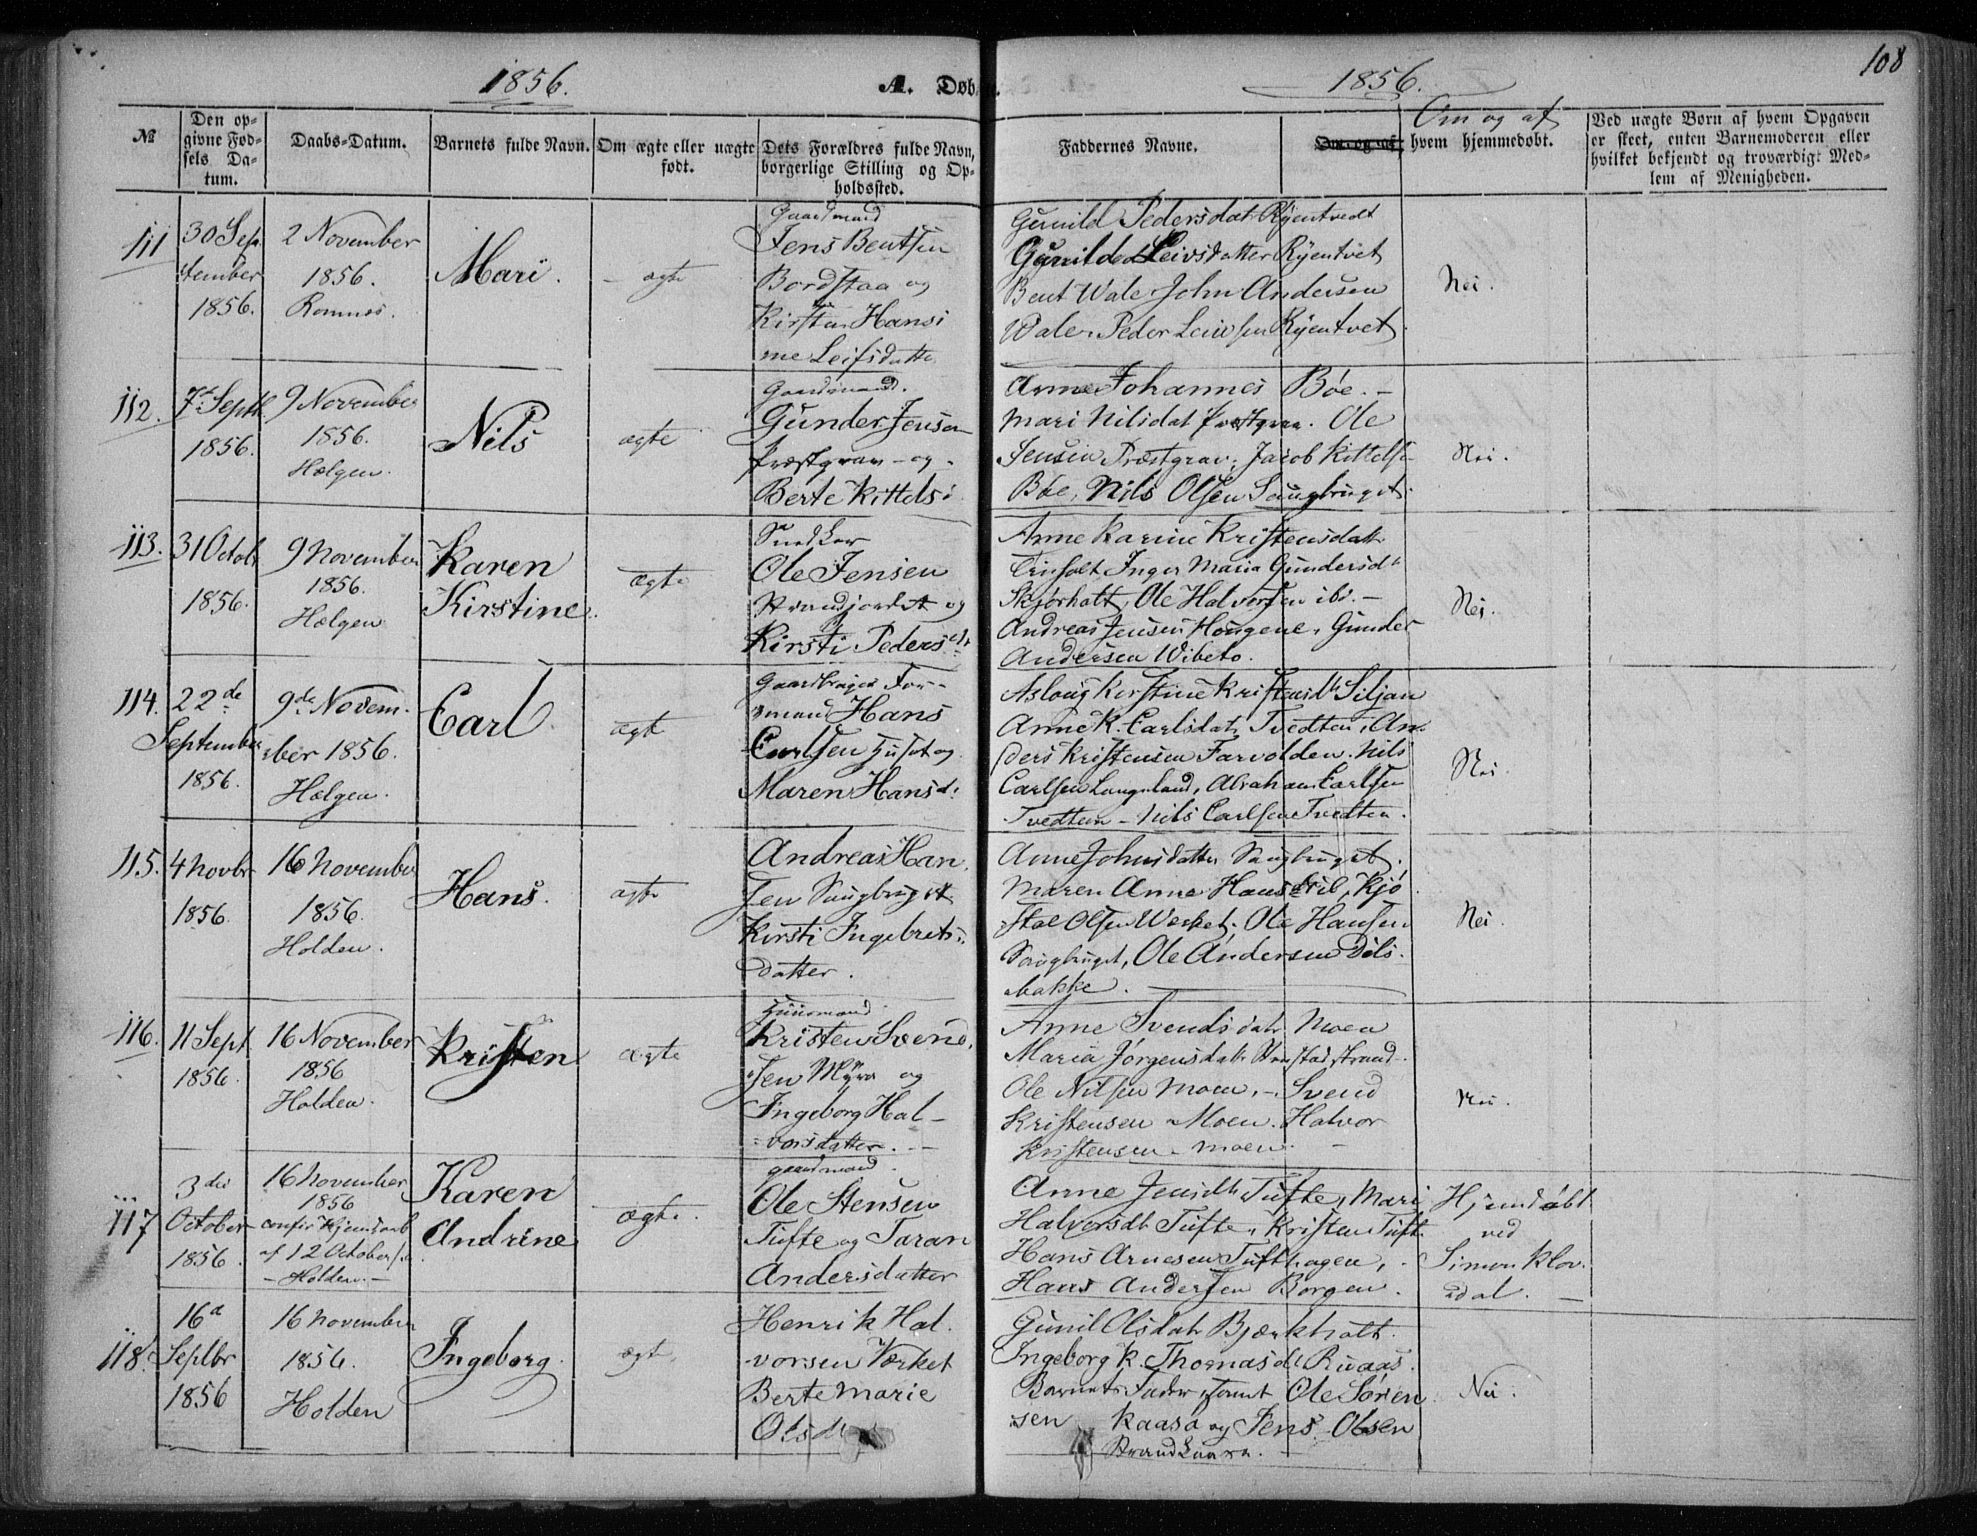 1856.
A. Døb
1856.
108
№
Den op-
givne Fød-
sels Da-
tum.
Daabs-Datum.
Barnets fulde Navn.
Om ægte eller uægte
født.
Dets Forældres fulde Navn,
borgerlige Stilling og Op-
holdssted.
Faddernes Navne.
Om og af
Om og af
hvem hjemmedøbt.
Ved uægte Børn af hvem Opgaven
er skeet, enten Barnemoderen eller
hvilket bekjendt og troværdigt Med-
lem af Menigheden.
111
30 Sep
tember
1856.
2 November
1856.
Romnes.
Mari.
ægte
Gaardmand
Jens Bentsen
Bordstaa og
Kirsten Hansi
ne Leifsdatte
Gunild Pedersdat Ryentvedt
Gunild Leivsdatter Ryentvet
Bent Wale John Andersen
Wale. Peder Leivsen Ryentvet.
Nei.
112.
7 Septb
1856.
9 November
1856.
Hælgen.
Nils
ægte
Gaardmand.
Gunder Jensen
Præstgrav - og -
Berte Kittelsd
Anne Johannes Bøe. -
Mari Nilsdat Præstgrav. Ole
Jensen Præstgrav, Jacob Kittelse
Bøe, Nils Olsen Saugbruget.
Nei.
113.
31 Octobr
1856.
9 November
1856.
Hælgen
Karen
Kirstine.
ægte
Snedker
Ole Jensen
Strandjordet og
Kirsti Pedersdt
Anne Karine Kristensdatt
Inger Maria Gundersdt
Skjørholt, Ole Halvorsen ibi. -
Andreas Jensen Hougene, Gunder
Andersen Wibeto.
Nei.
114.
22de
September
1856.
9de Novem-
ber 1856.
Hælgen.
Carl
ægte
Gaardbruger For-
mand Hans
Carlsen og
Maren Hansd.
Aslaug Kirstine Kristensdt Siljan
Anne K. Carlsdat Tvedten, An-
ders Kristensen Farvolden. Nils
Carlsen Langeland, Abraham Carlsen
Tvedten - Nils Carlsen Tvedten.
Nei.
115.
4 Novbr
1856.
16 November
1856.
Holden.
Hans.
ægte
Andreas Han
sen Saugbruget
Kirsti Ingebrets-
datter.
Anne Johnsdatter Saugbruget,
Maren Anne Hans Kjø
stol Olsen Werket, Ole Hansen
Saugbruget, Ole Andersen Døls-
bakke.
Nei.
116.
11 Sept
1856.
16 November
1856
Holden.
Kristen
ægte
Huusmand
Kristen Svend
sen Myra og
Ingeborg Hal-
vorsdatter. -
Anne Svendsdatr Moen
Maria Jørgensdatr
Ole Nilsen Moen, - Svend
Kristensen Moen. Halvor
Kristensen Moen.
Nei.
117
3die
October
1856.
16 November
1856
confir Hjemdaab
af 12 October
- Holden. -
Karen
Andrine
ægte.
gaardmand.
Ole Stensen
Tufte og Taran
Andersdatter
Anne Jensdt Tufte, Mari
Halvorsdt Tufte, Kristen Tuft.
Hans Arnesen Tufthagen,
Hans Andersen Borgen.
Hjemdøbt
ved
Simon Klov-
dal. -
118.
16d
Septbr
1856
16 November
1856.
Holden
Ingeborg.
ægte
Henrik Hal-
vorsen Værket
Berte Marie
Olsdt
Gunil Olsdatr Bjærkholt.
Ingeborg K. Thomasdt Rwaas.
Barnets Fader, samt Ole Søren
sen Kaasa og Jens Olsen
Nei.